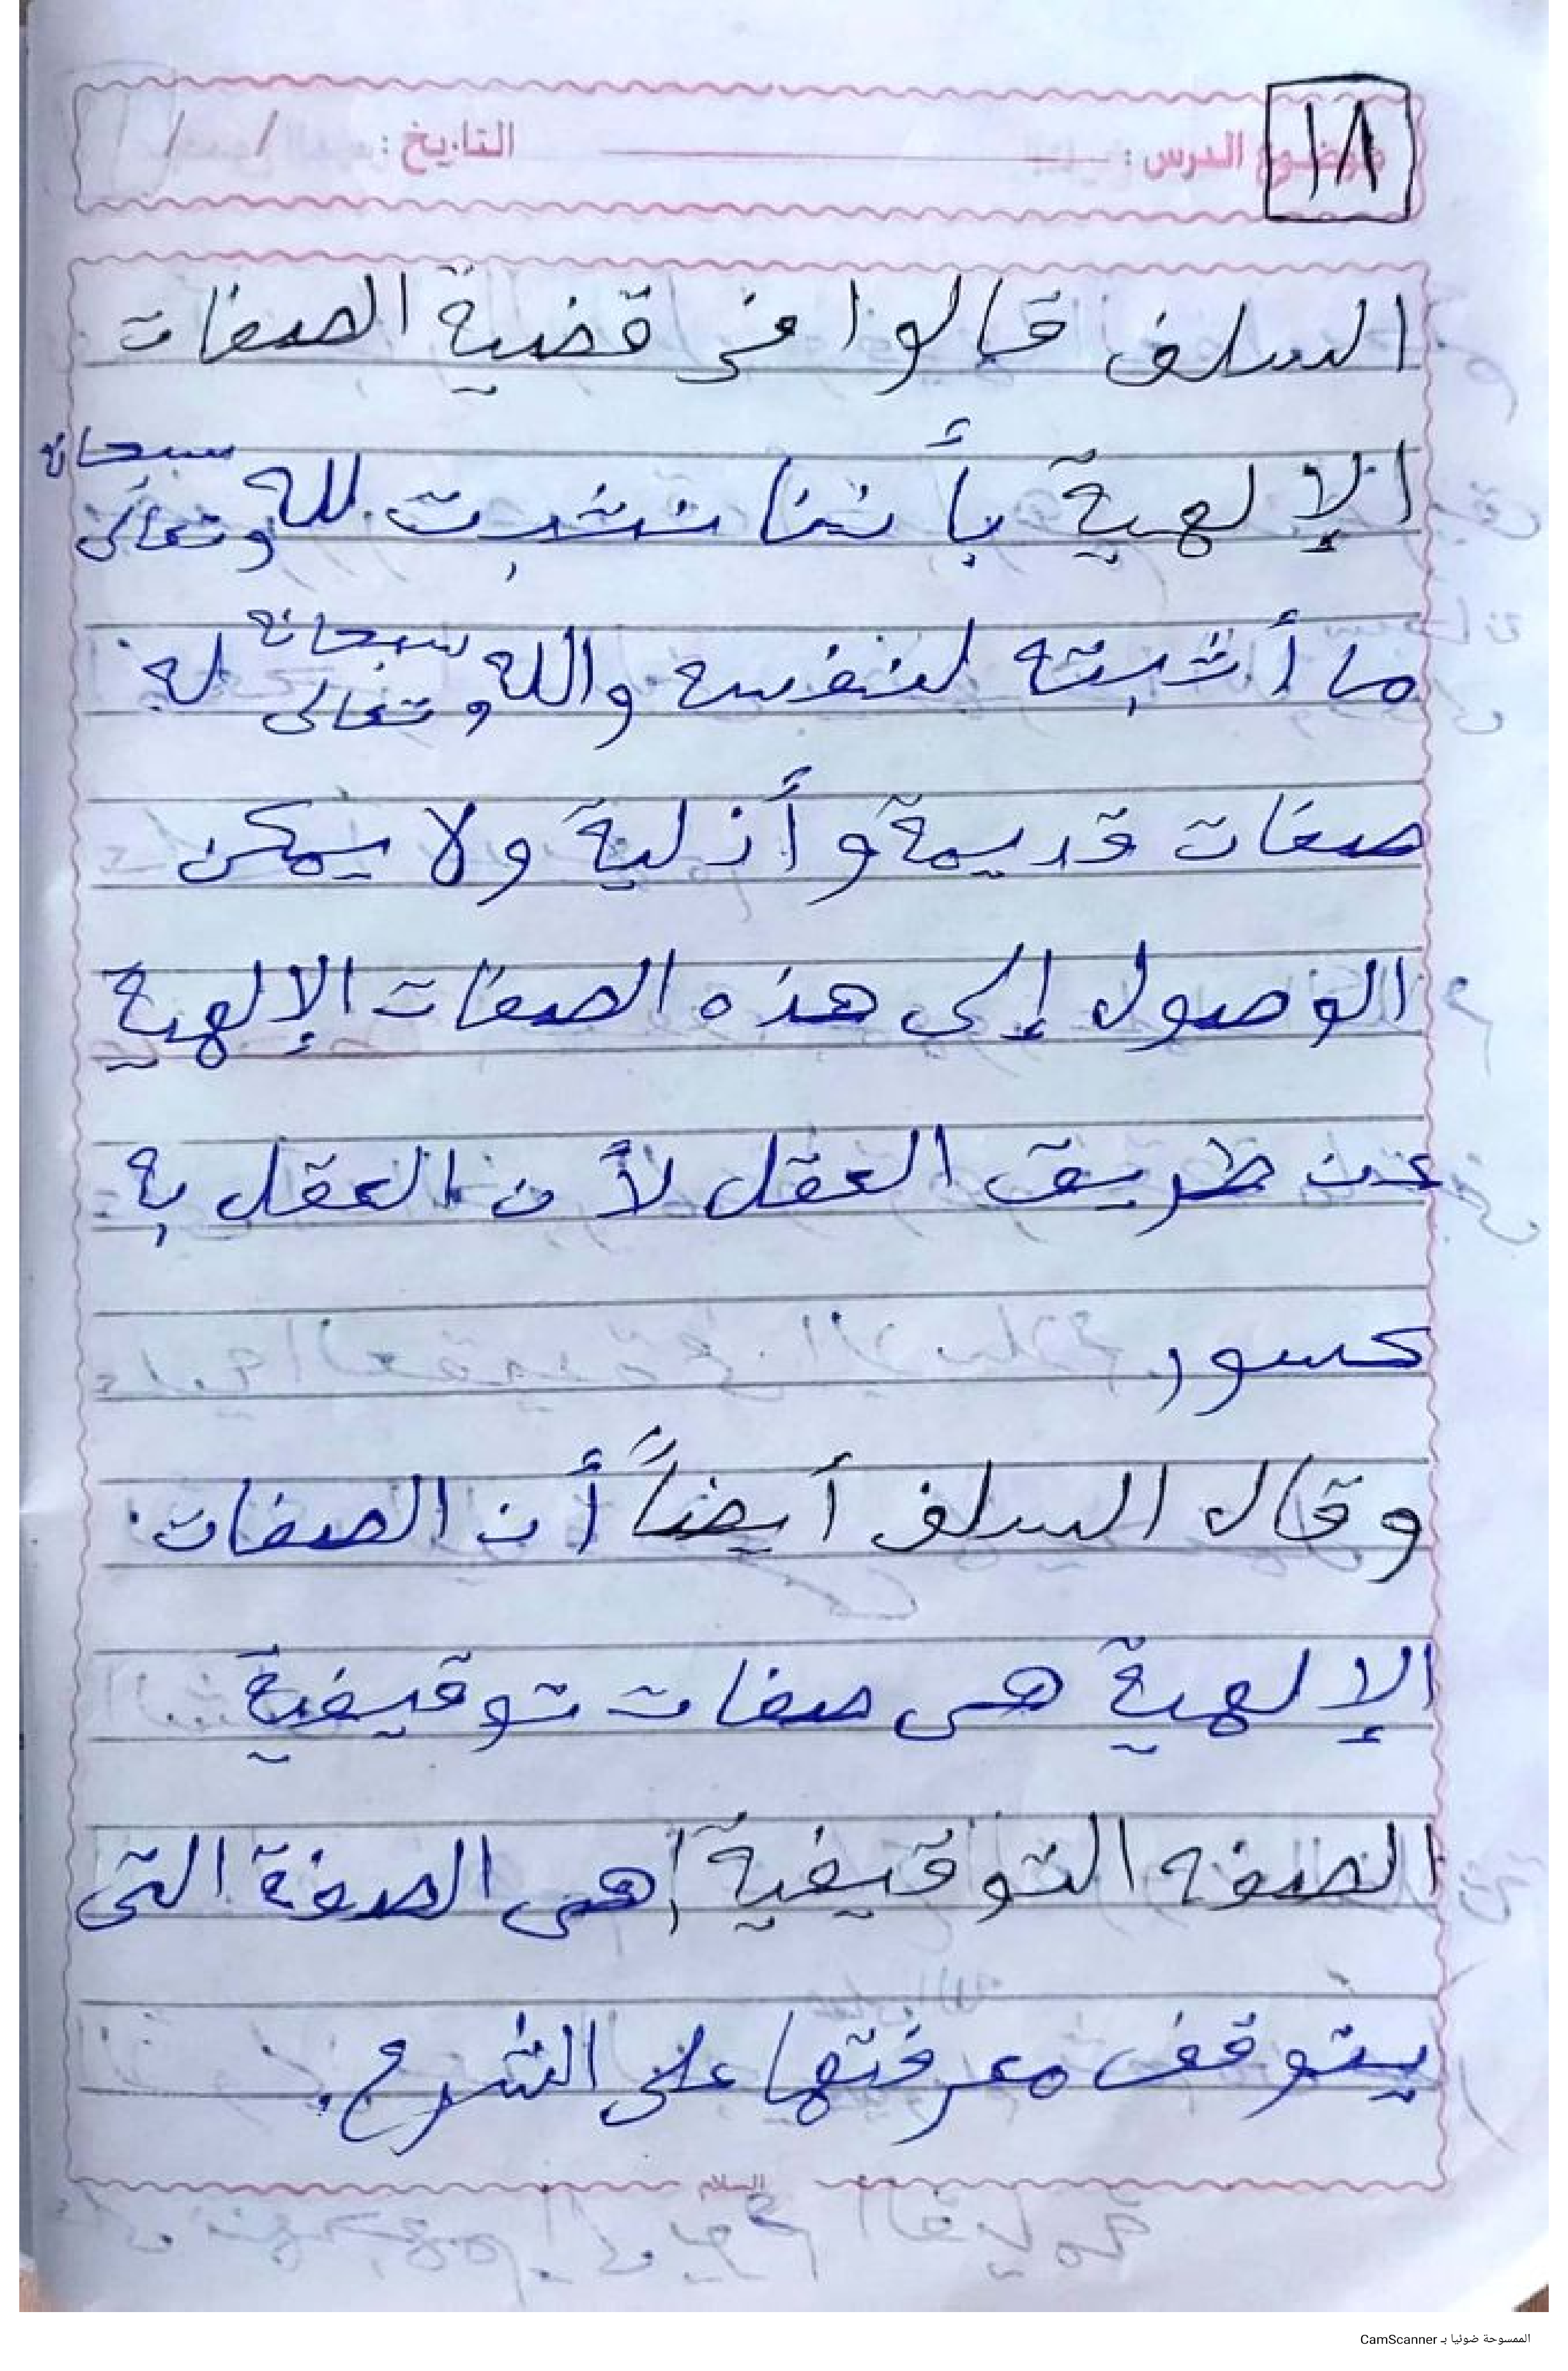 ١٨
موضوع الدرس : التاريخ : / /
السلف قالوا فى قضية الصفات
الإلهية بأننا نثبت لله سبحانه وتعالى
ما أثبته لنفسه والله سبحانه وتعالى له
صفات قديمة وأزلية ولا يمكن
الوصول إلى هذه الصفات الإلهية
عن طريق العقل لأن العقل به
كسور
وقال السلف أيضاً أن الصفات
الإلهية هى صفات توقيفية
الصفه التوقيفية / هى الصفة التى
يتوقف معرفتها على الشرع.
السلام
الممسوحة ضوئيا بـ CamScanner